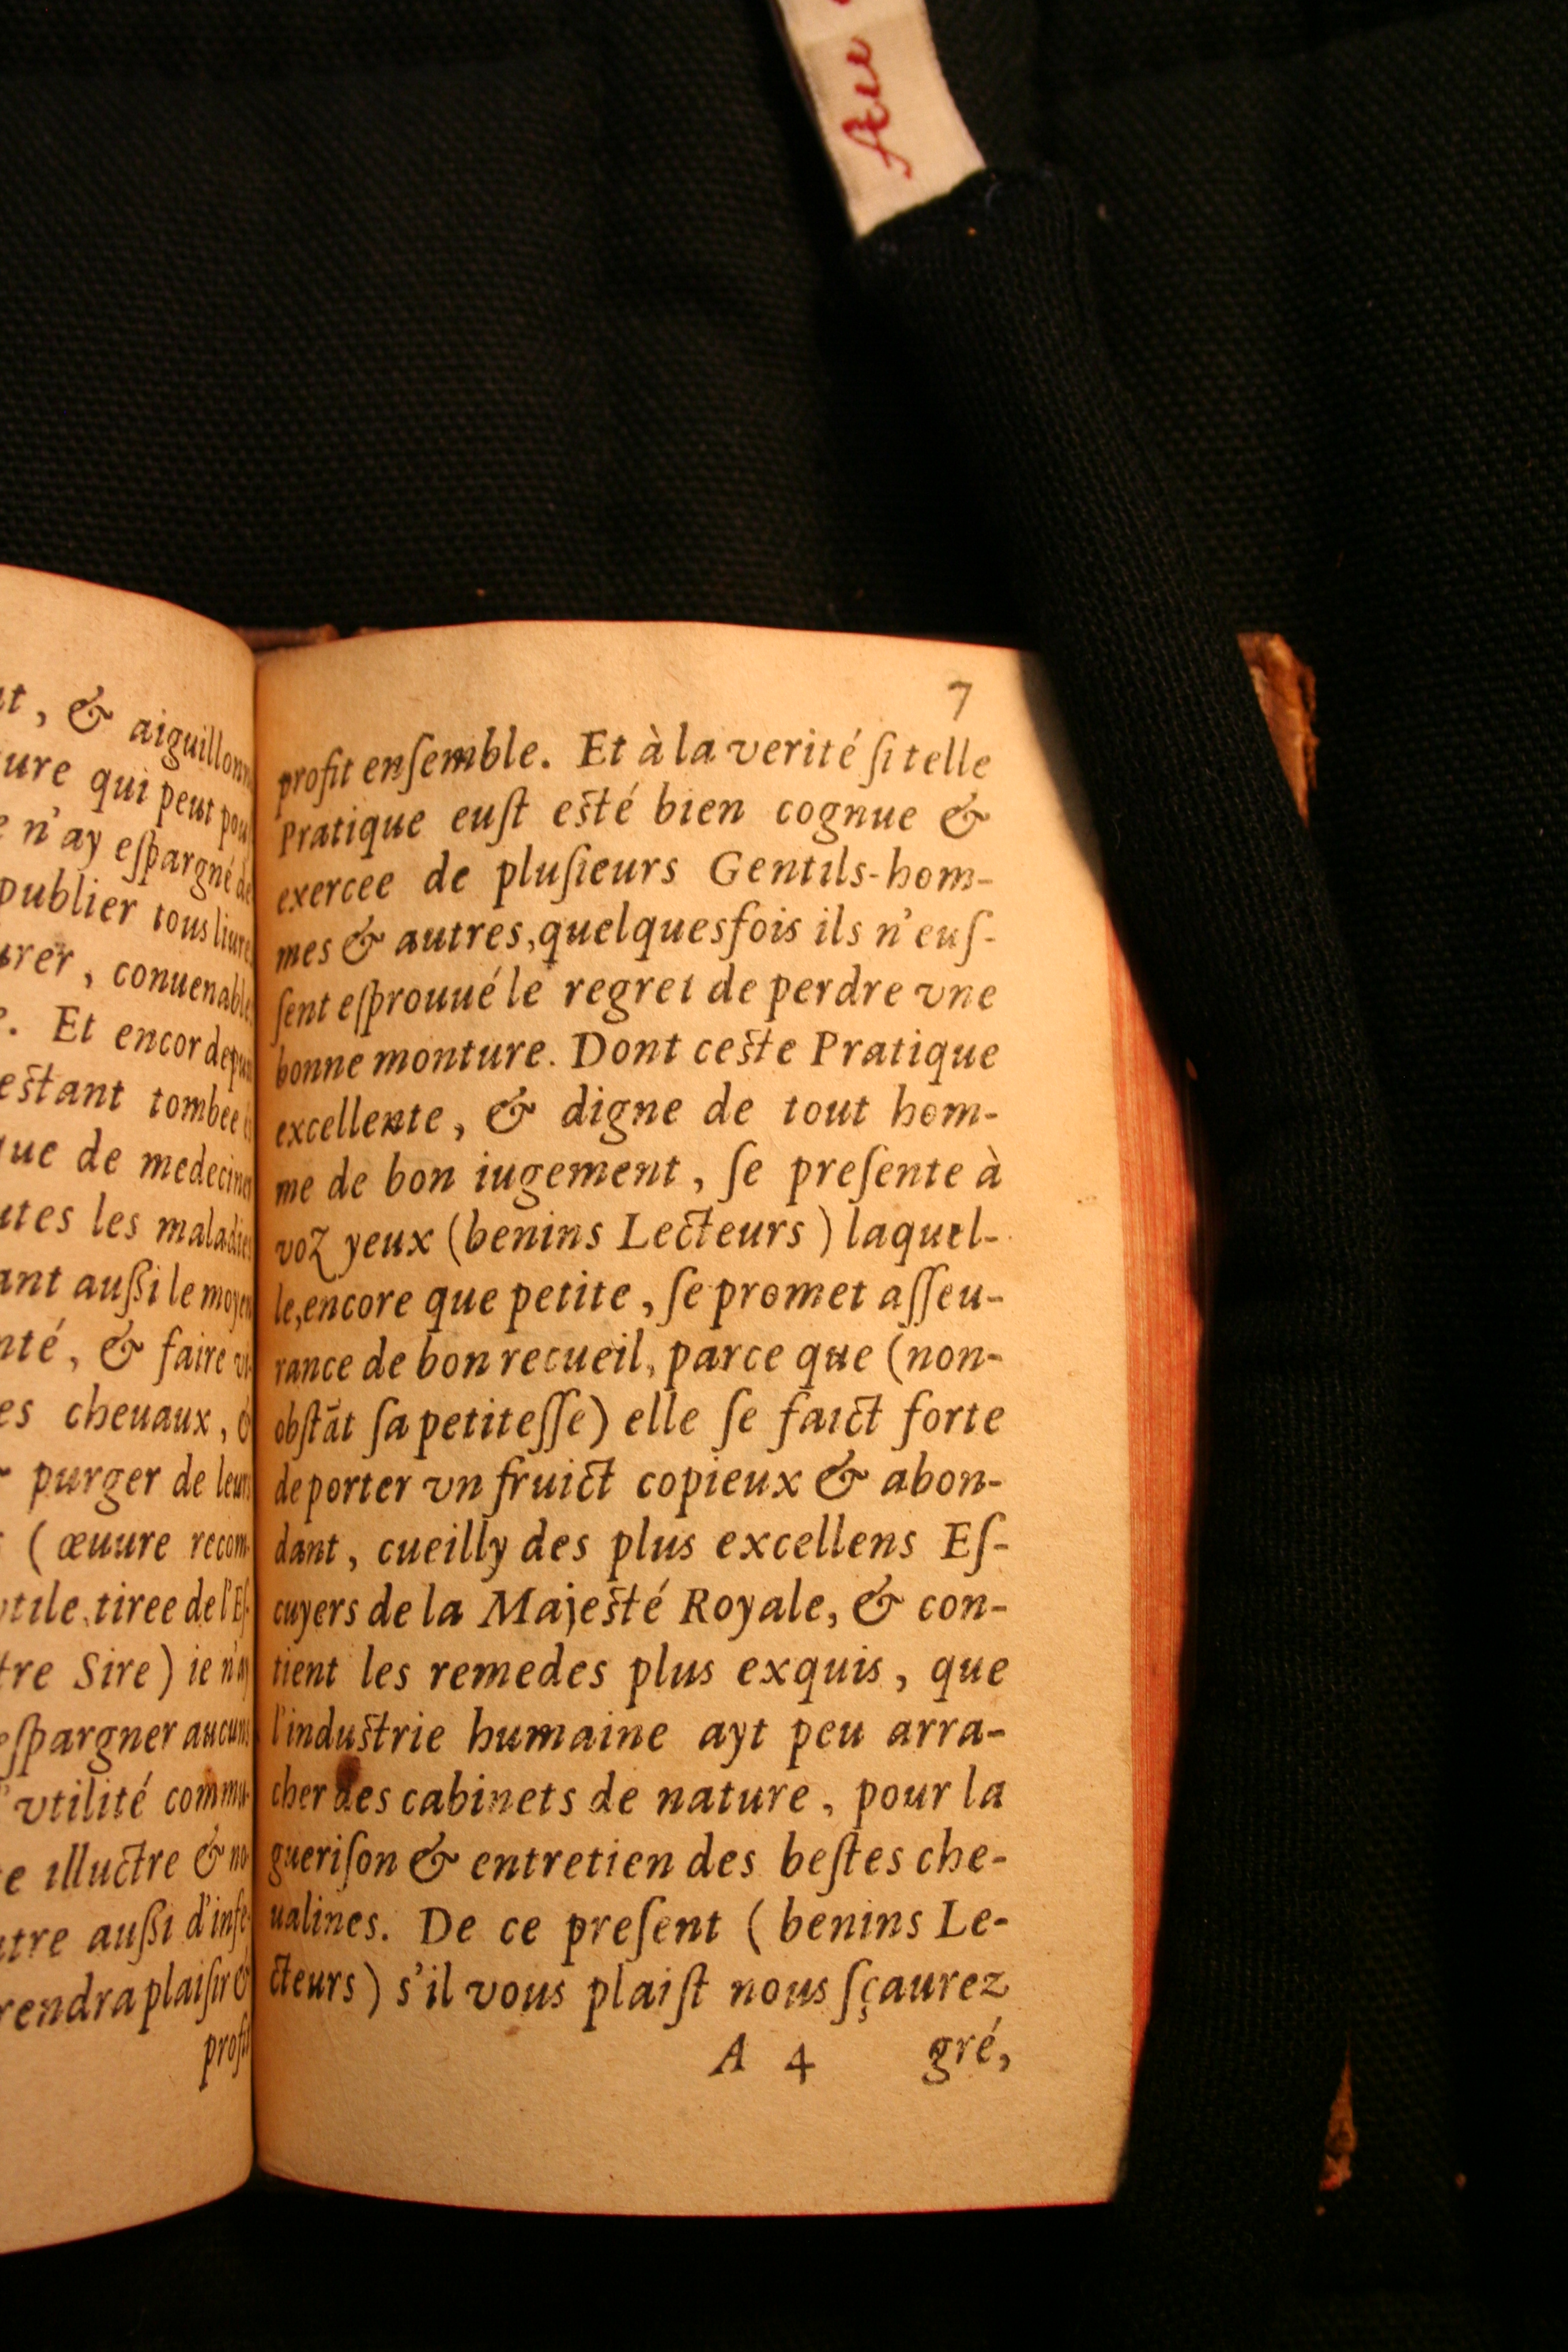 Au
, & aiguillonn
ure qui peut pou
n'ay eſpargné de
publier tous liure
urer, conuenable
. Et encor depuis
eſtant tombee
que de medecines
utes les maladies
ant auſſi le moyen
nté, & faire
es cheuaux,
purger de leurs
(œuure recom-
vtile, tiree de l'Eſ-
tre Sire) ie n'ay
eſpargner aucuns
vtilité commu-
e illuctre & no-
utre auſſi d'infe-
rendra plaiſir &
profit
7
profit enſemble. Et à la verité ſi telle
Pratique euſt eſté bien cognue &
exercee de pluſieurs Gentils-hom-
mes & autres, quelquesfois ils n'euſ-
ſent eſprouué le regret de perdre vne
bonne monture. Dont ceſte Pratique
excellente, & digne de tout hom-
me de bon iugement, ſe preſente à
voz yeux (benins Lecteurs) laquel-
le, encore que petite, ſe promet aſſeu-
rance de bon recueil, parce que (non-
obſtāt ſa petiteſſe) elle ſe faict forte
de porter vn fruict copieux & abon-
dant, cueilly des plus excellens Eſ-
cuyers de la Majeſté Royale, & con-
tient les remedes plus exquis, que
l'induſtrie humaine ayt peu arra-
cher des cabinets de nature, pour la
gueriſon & entretien des beſtes che-
ualines. De ce preſent (benins Le-
cteurs) s'il vous plaiſt nous ſçaurez
A 4 gré,